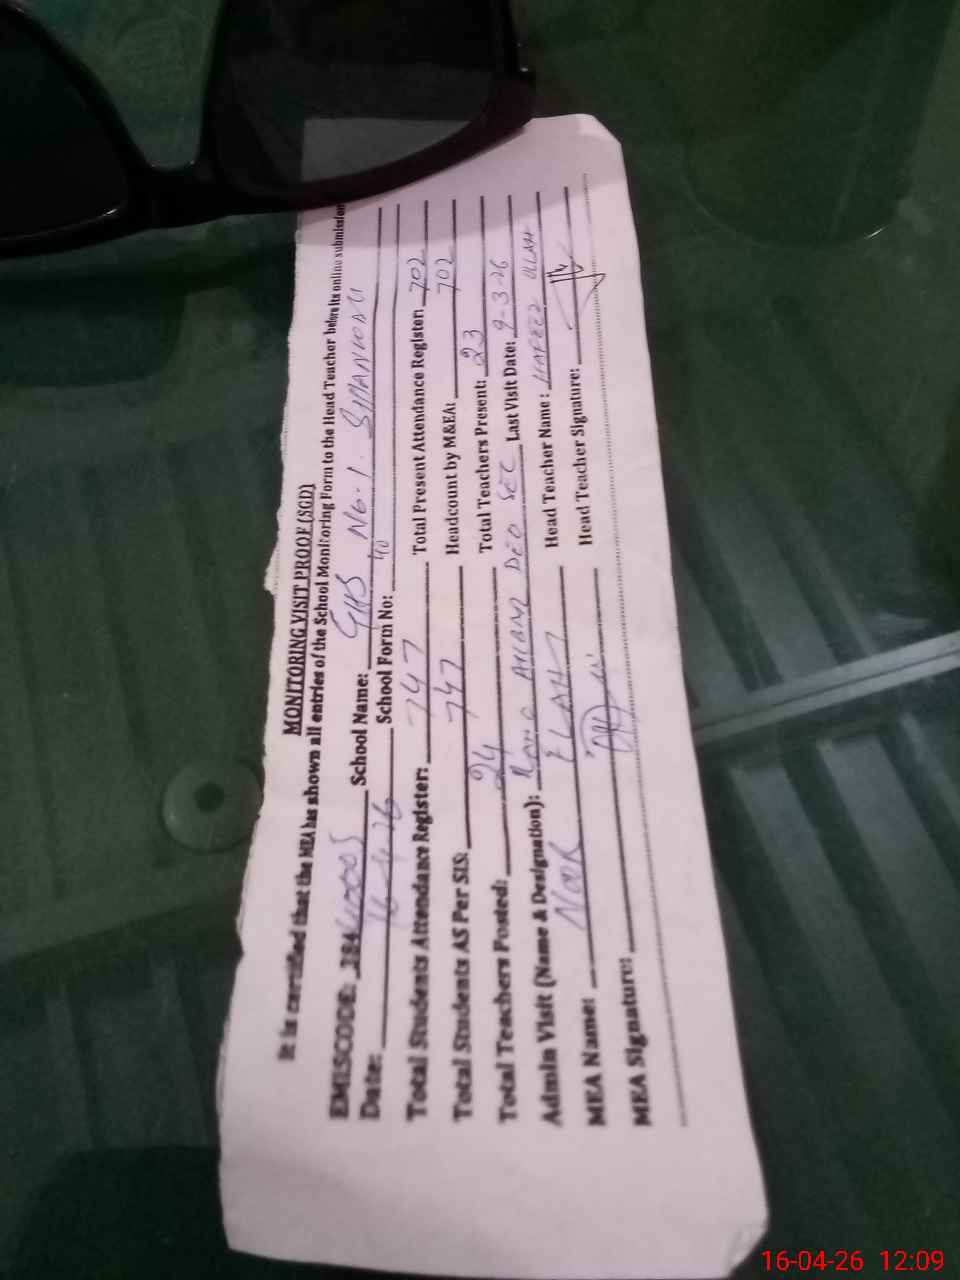 MONITORING VISIT PROOF (SGD)
It is certified that the MEA has shown all entries of the School Monitoring Form to the Head Teacher before its online submission
EMISCODE: 38440005 School Name: GHS No. 1. SHANKONU
Date: 16-4-26 School Form No: 40
Total Students Attendance Register: 747 Total Present Attendance Register: 702
Total Students AS Per SIS: 747 Headcount by M&EA: 702
Total Teachers Posted: 24 Total Teachers Present: 23
Admin Visit (Name & Designation): DEO SEC Last Visit Date: 9-3-26
MEA Name: NOOR ELAHI Head Teacher Name: HAFEEZ ULLAH
MEA Signature: Head Teacher Signature:
16-04-26 12:09